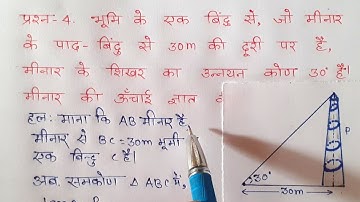 प्रश्न-4. भूमि के एक बिंदु से, जो मीनार
के पाद-बिंदु से 30m की दूरी पर है,
मीनार के शिखर का उन्नयन कोण 30° है।
मीनार की ऊँचाई ज्ञात
हल: माना कि AB मीनार है
मीनार से BC = 30m भूमी
एक बिन्दु C है।
अब समकोण △ ABC में,
30°
30m
P